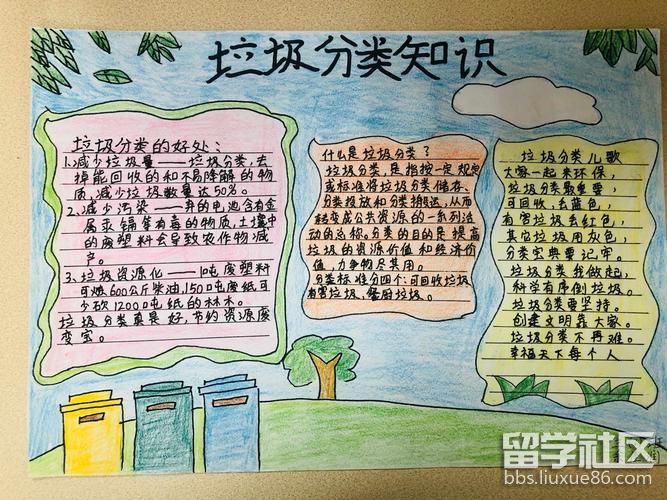 垃圾分类知识
垃圾分类的好处：
1.减少垃圾量——垃圾分类，去
掉能回收的和不易降解的物
质，减少垃圾数量达50%。
2.减少污染——弃的电池含有金
属汞镉等有毒的物质，土壤中
的废塑料会导致农作物减
产。
3.垃圾资源化——1吨废塑料
可炼600公斤柴油，1500吨废纸可
少砍1200吨纸的林木。
垃圾分类真是好，节约资源废
变宝。
什么是垃圾分类？
垃圾分类，是指按一定规定
或标准将垃圾分类储存、
分类投放和分类搬运，从而
转变成公共资源的一系列活
动的总称。分类的目的是提高
垃圾的资源价值和经济价
值，力争物尽其用。
分类标准分四个：可回收垃圾
有害垃圾、餐厨垃圾。
垃圾分类儿歌
大家一起来环保，
垃圾分类最重要；
可回收，去蓝色，
有害垃圾去红色，
其它垃圾用灰色，
分类宝典要记牢。
垃圾分类我做起，
科学有序倒垃圾。
垃圾分类要坚持。
创建文明靠大家。
垃圾分类不再难。
幸福天下每个人
留学社区
bbs.liuxue86.com